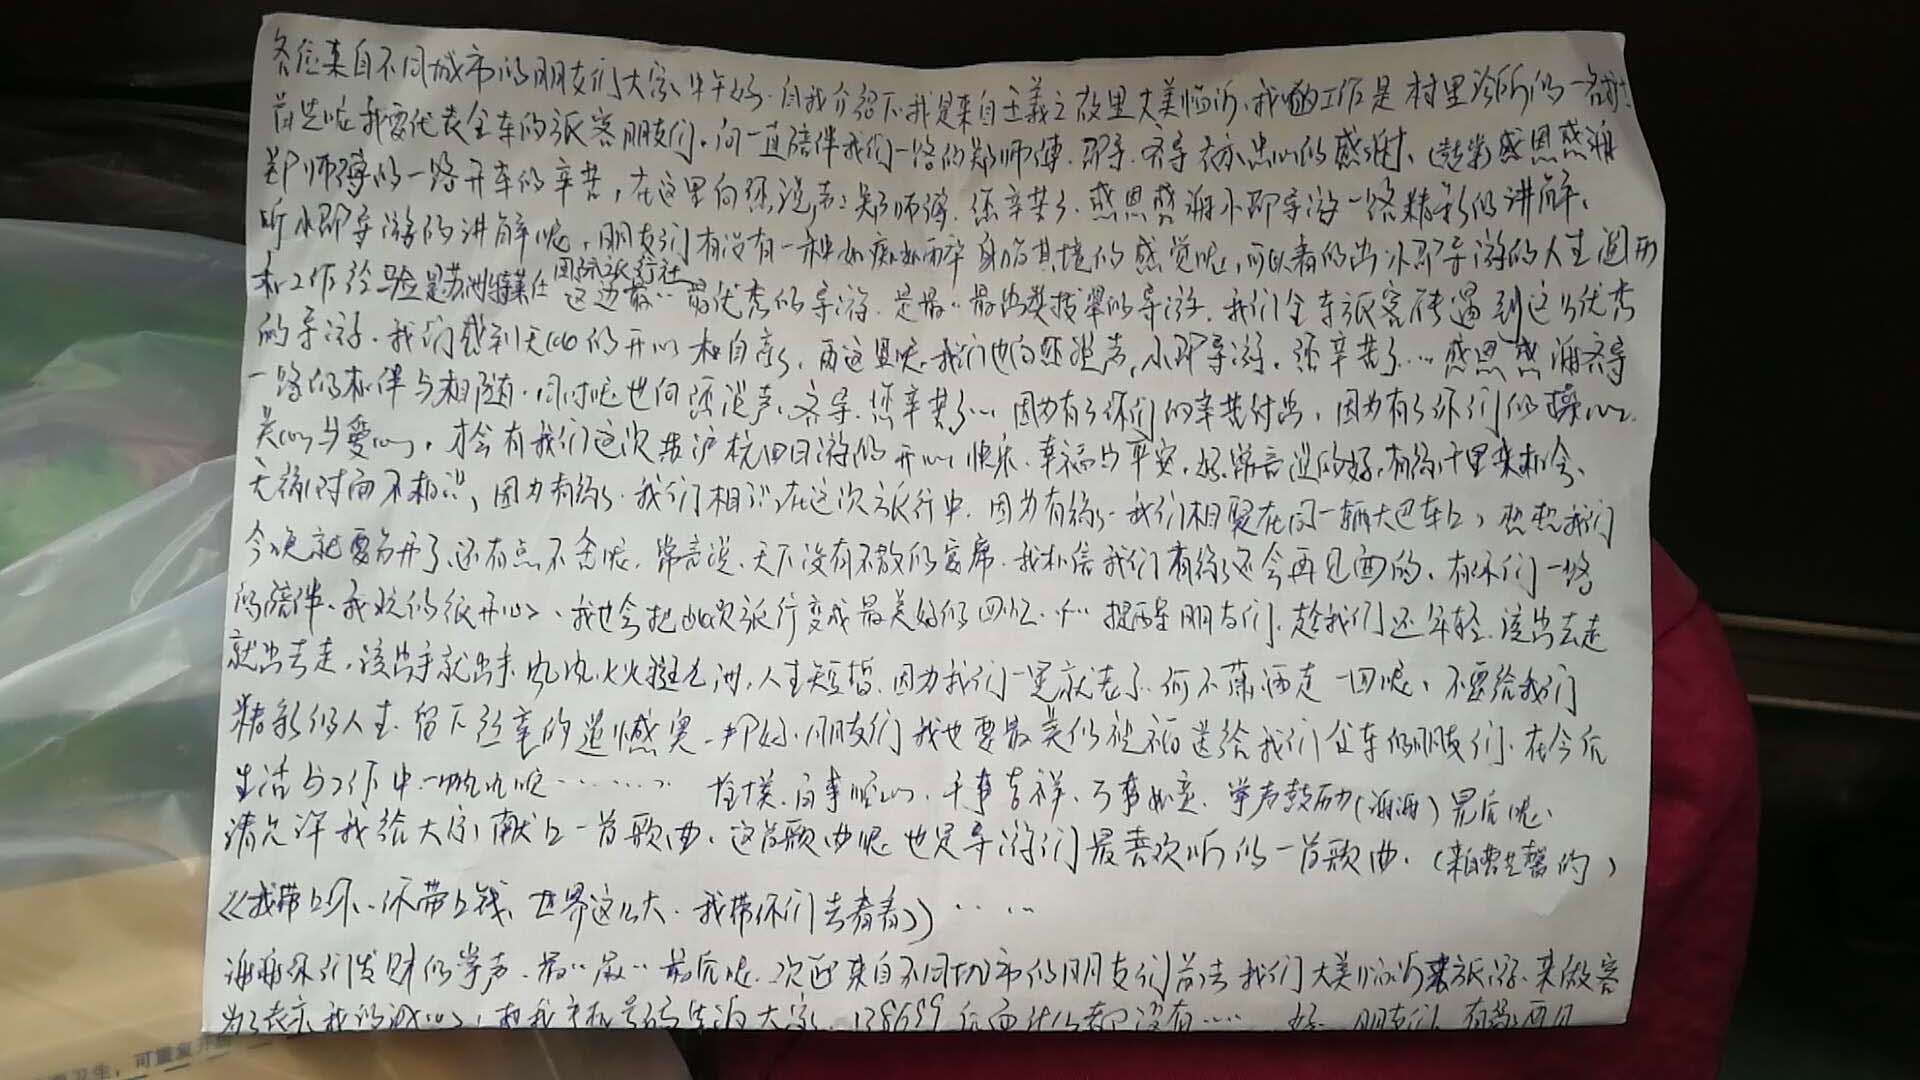 各位来自不同城市的朋友们大家中午好.自我介绍下.我是来自王羲之故里大美临沂.我的工作是村里诊所的一名
首先呢我要代表全车的旅客朋友们.向一直陪伴我们一路的郑师傅.邵导.齐导表示忠心的感谢、(鼓掌)感恩感谢
郑师傅的一路开车的辛苦,在这里向您说声:郑师傅.您辛苦了.感恩感谢小邵导游一路精彩的讲解、
听小邵导游的讲解呢,朋友们有没有一种如痴如醉身临其境的感觉呢,可以看的出小邵导游的人生阅历
和工作经验是苏州 国际旅行社 这边最..最优秀的导游.是最..最出类拔翠的导游.我们全车旅客能遇到这么优秀
的导游.我们感到无比的开心和自豪.再这里呢.我们也向您说声,小邵导游.您辛苦了...感恩感谢齐导
一路的相伴与相随.同时呢也向您说声、齐导.您辛苦了...因为有了你们的辛苦付出,因为有了你们的操心.
关心与爱心,才会有我们这次苏沪杭四日游的开心快乐.幸福与平安.好.常言说的好,有缘千里来相会、
无缘对面不相识,因为有缘.我们相识在这次旅行中.因为有缘.我们相聚在同一辆大巴车上,想想我们
今晚就要分开了还有点不舍呢.常言说、天下没有不散的宴席.我相信我们有缘还会再见面的、有你们一路
的陪伴、我玩的很开心、我也会把此次旅行变成最美好的回忆...提醒朋友们.趁我们还年轻.该出去走
就出去走,该出手就出手.风风火火闯九州,人生短暂.因为我们一晃就老了.何不潇洒走一回呢、不要给我们
精彩的人生.留下丝毫的遗憾奥.好.朋友们我也要最美的祝福送给我们全车的朋友们.在今后
生活与工作中一帆风顺.......... 百事顺心.千事吉祥.万事如意.掌声鼓励(谢谢)最后呢、
请允许我给大家献上一首歌曲.这首歌曲呢也是导游们最喜欢听的一首歌曲.(来自费玉清的)
《我带上你、你带上钱、世界这么大.我带你们去看看》.....
谢谢你们发财的掌声.最..最..最后呢.欢迎来自不同城市的朋友们前去我们大美临沂来旅游、来做客
为了表示我的诚心,把我手机号码告诉大家.138699后面什么都没有.....好.朋友们.有缘再见